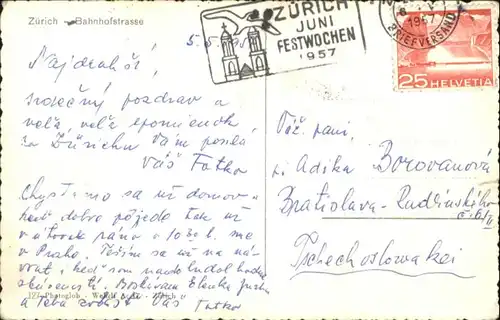 Zürich - Bahnhofstrasse
ZÜRICH
JUNI
FESTWOCHEN
1957
1957
BRIEFVERSAND
25 HELVETIA
5.5.
Najdrahší,
srdečný pozdrav a
veľa, veľa spomienok
zo Zürichu Vám posiela
Váš Fatko
Chystamo sa už domov
keď dobre pôjede tak už
v útorok ráno o 1030 h. sme
v Prahe. Teším sa už na ná-
vrat, keď som
Boskávam Elenku
a Teba Váš Fatko
Váž. pani,
Adika Borovanová
Bratislava -
Tschechoslowakei
127 Photoglob - Zürich